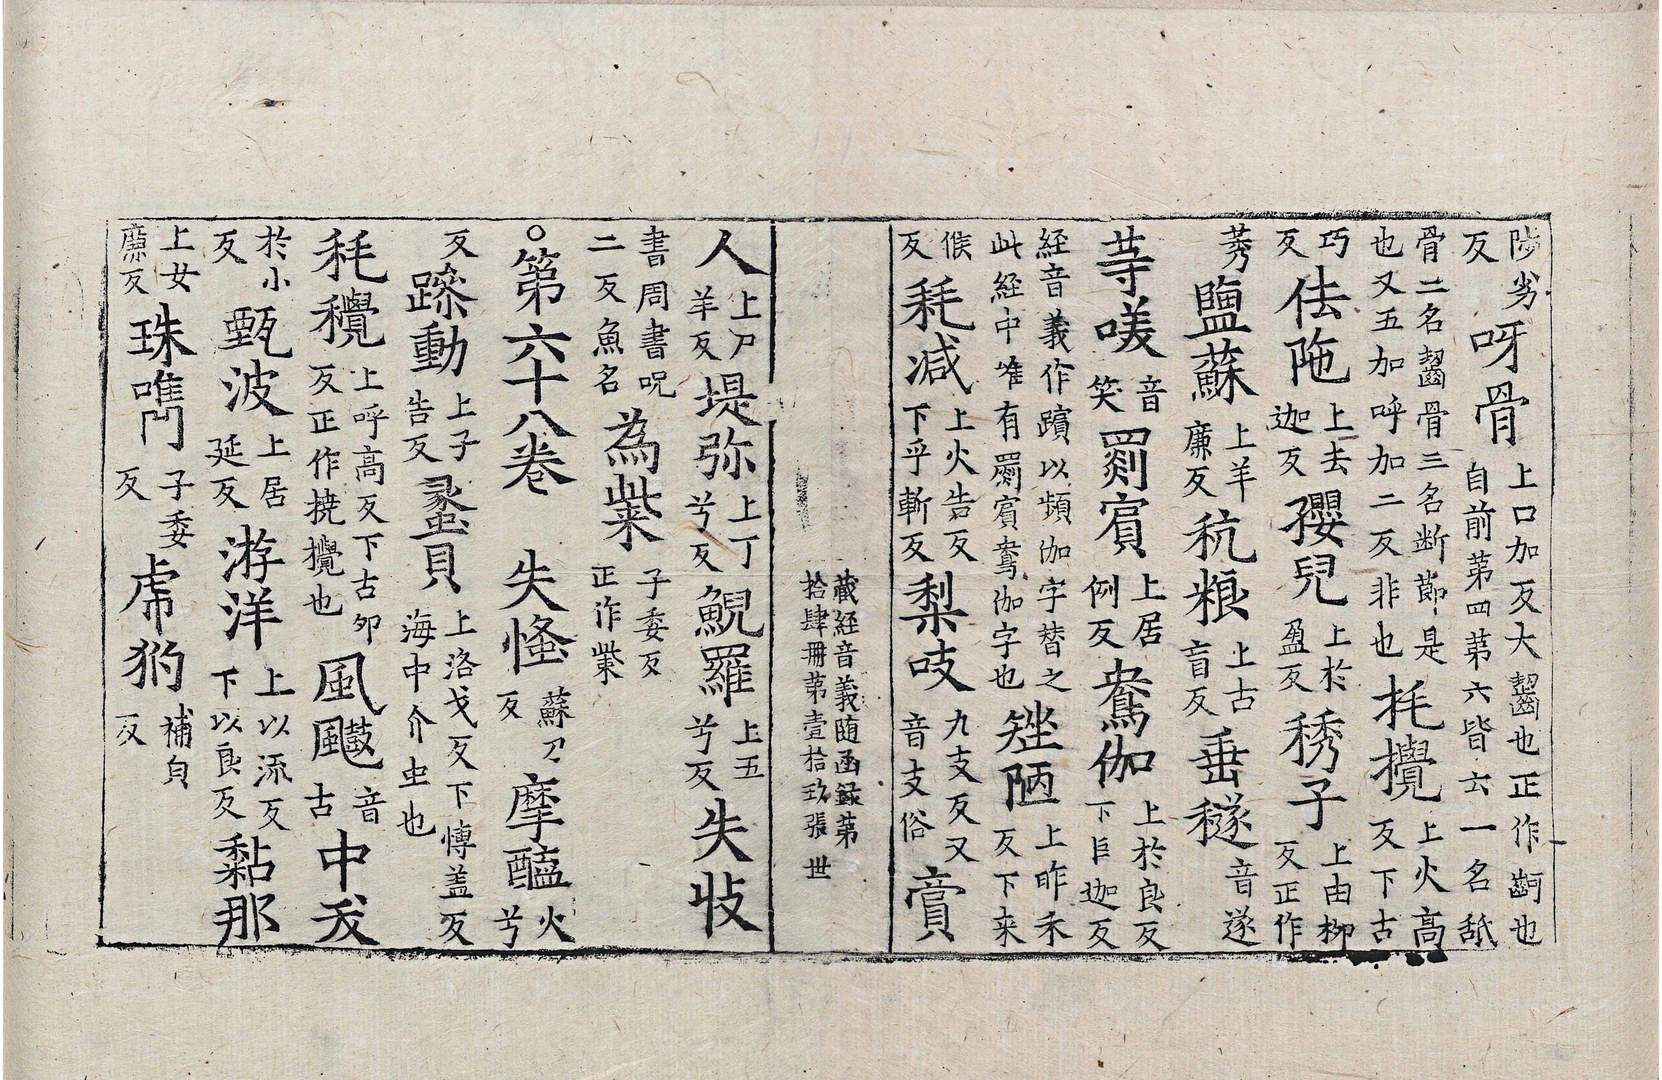 陟劣反呀骨上口加反大齧也正作齖也自前第四第六皆云一名䑛
骨二名齧骨三名断節是也又五加呼加二反非也扥攪上火高反下古
巧反佉陁上去迦反㜸兒上於盈反秀子上由柳反正作
莠鹽蘇上羊廉反秔粮上古盲反垂䅗音遂
䓁㗛音笑罽賔上居例反鴦伽上於良反下巨迦反
経音義作躓以頻伽字替之此経中唯有罽賔鴦伽字也矬陋上昨禾反下来
候反秏減上火告反下乎斬反梨吱九支反又音支俗䝨
藏経音義随函録第
拾肆冊第壹拾玖張 世
人上尸羊反堤弥上丁兮反鯢羅上五兮反失𡚁
書周書呪二反魚名為㭰子委反正作㭰
○第六十八卷 失慅蘇刀反摩醯火兮
反躁動上子告反蠃貝上洛戈反下博盖反海中介虫也
秏攪上呼高反下古卯反正作撓攪也風䬌音古中犮
於小反甄波上居延反游洋上以流反下以良反黏那
上女廉反珠㗻子委反虎豹補皃反